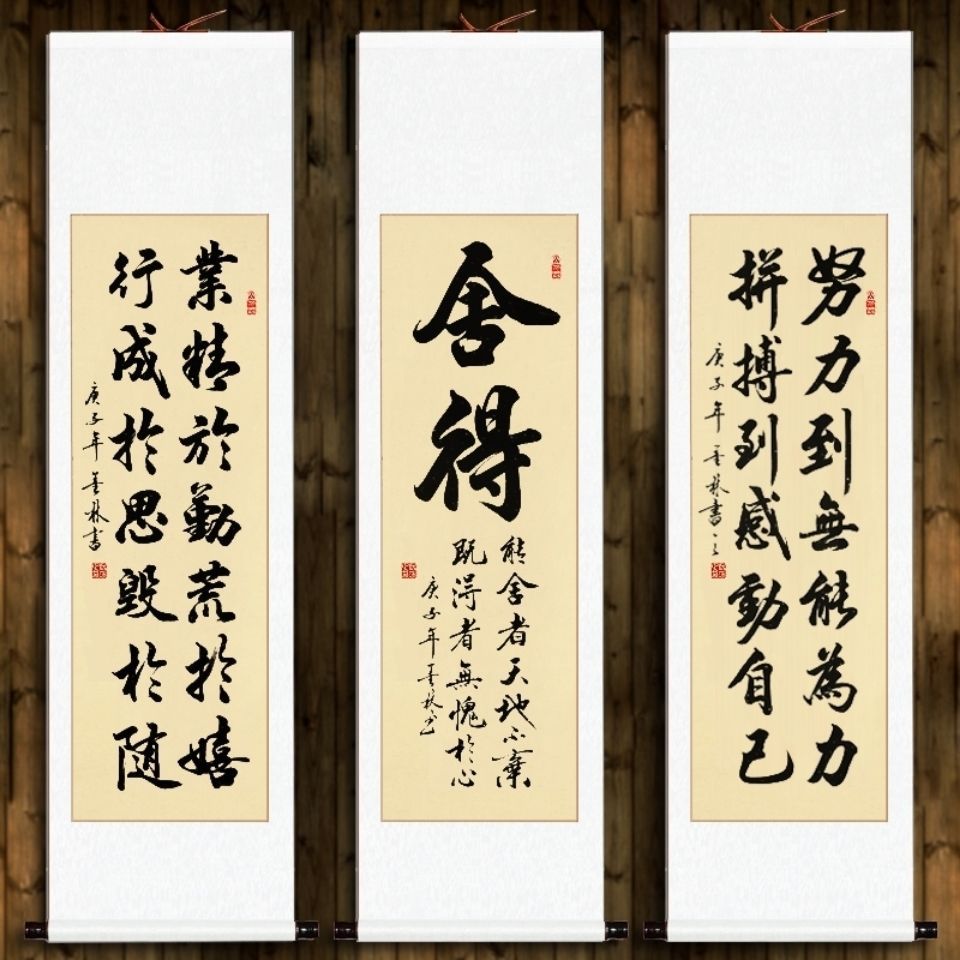 業精於勤荒於嬉
行成於思毀於随
庚子年 林書
舍得
能舍者天地不棄
既得者無愧於心
庚子年 林
努力到無能為力
拼搏到感動自己
庚子年 林書